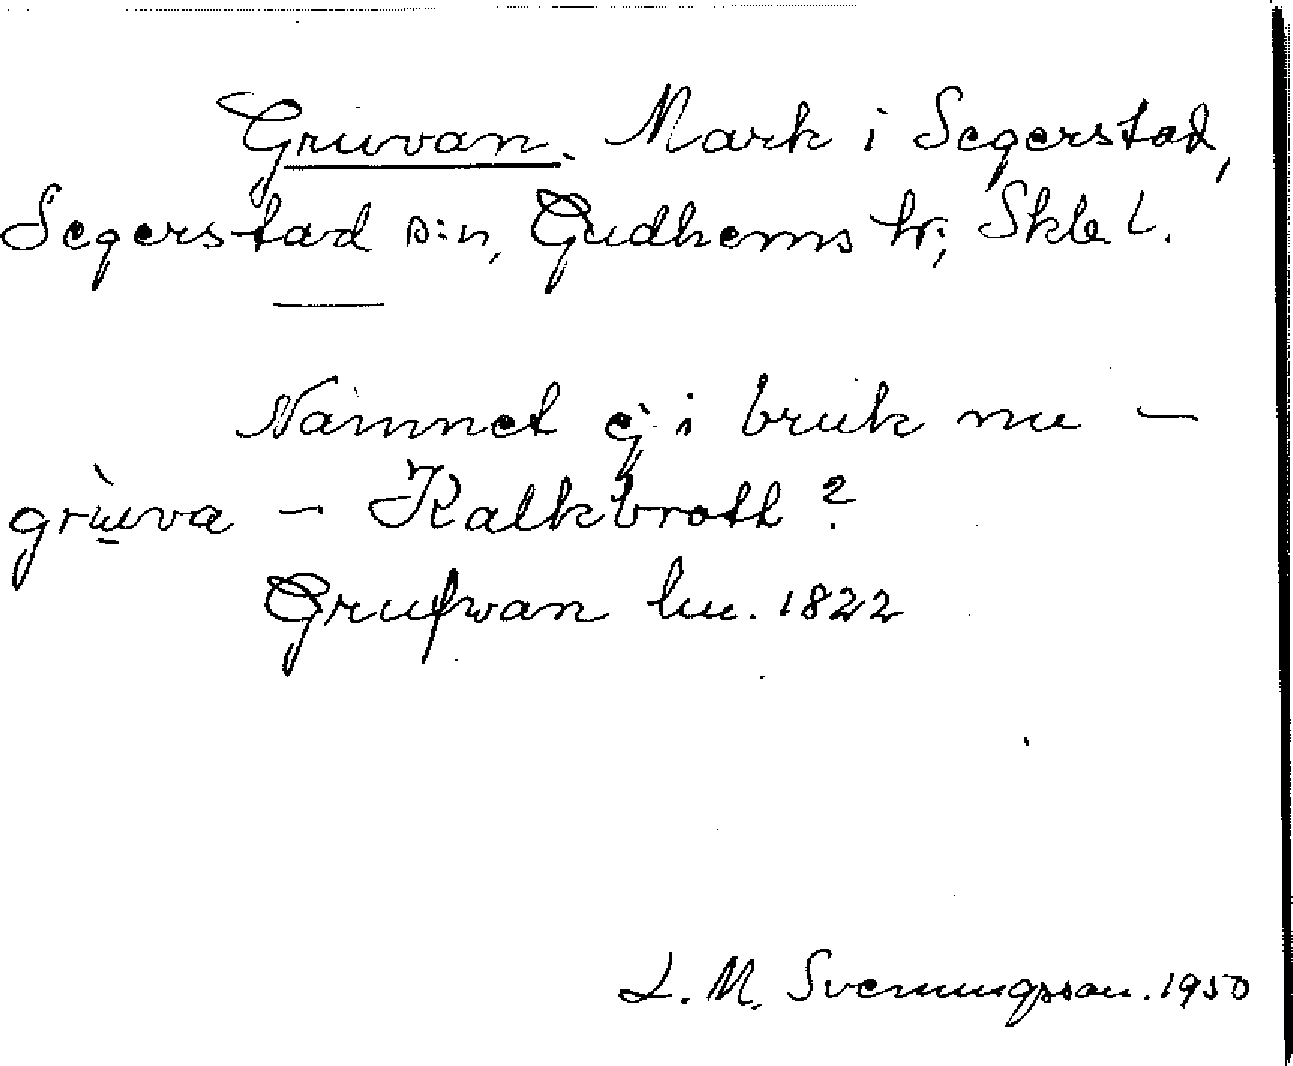 Gruvan. Mark i Segerstad,
Segerstad s:n, Gudhems hr; Skbl.
Namnet ej i bruk nu —
grùva — Kalkbrott?
Grufwan lm. 1822
L. M. Svenungsson. 1950